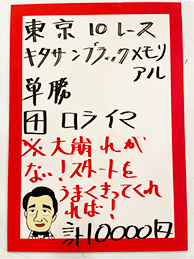 東京10レース
キタサンブラックメモリ
アル
単勝
田 ロライマ
※大崩れが
ない！スタートを
うまくきってくれ
れば！
計10000円